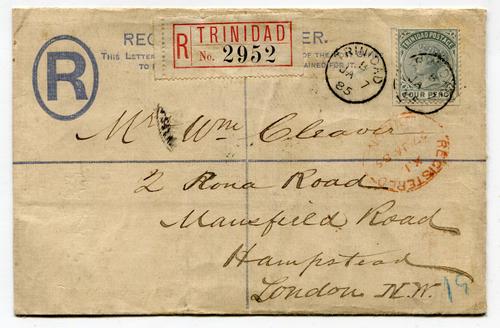 REG ER.
THIS LETTER OF THE
TO BE TAINED FOR IT.
R TRINIDAD
No. 2952
R
TRINIDAD
JA 7
85
TRINIDAD POSTAGE
FOUR PENCE
REGISTERED
JA 85
Mr Wm Cleaver
2 Rona Road
Mansfield Road
Hampstead
London N.W.